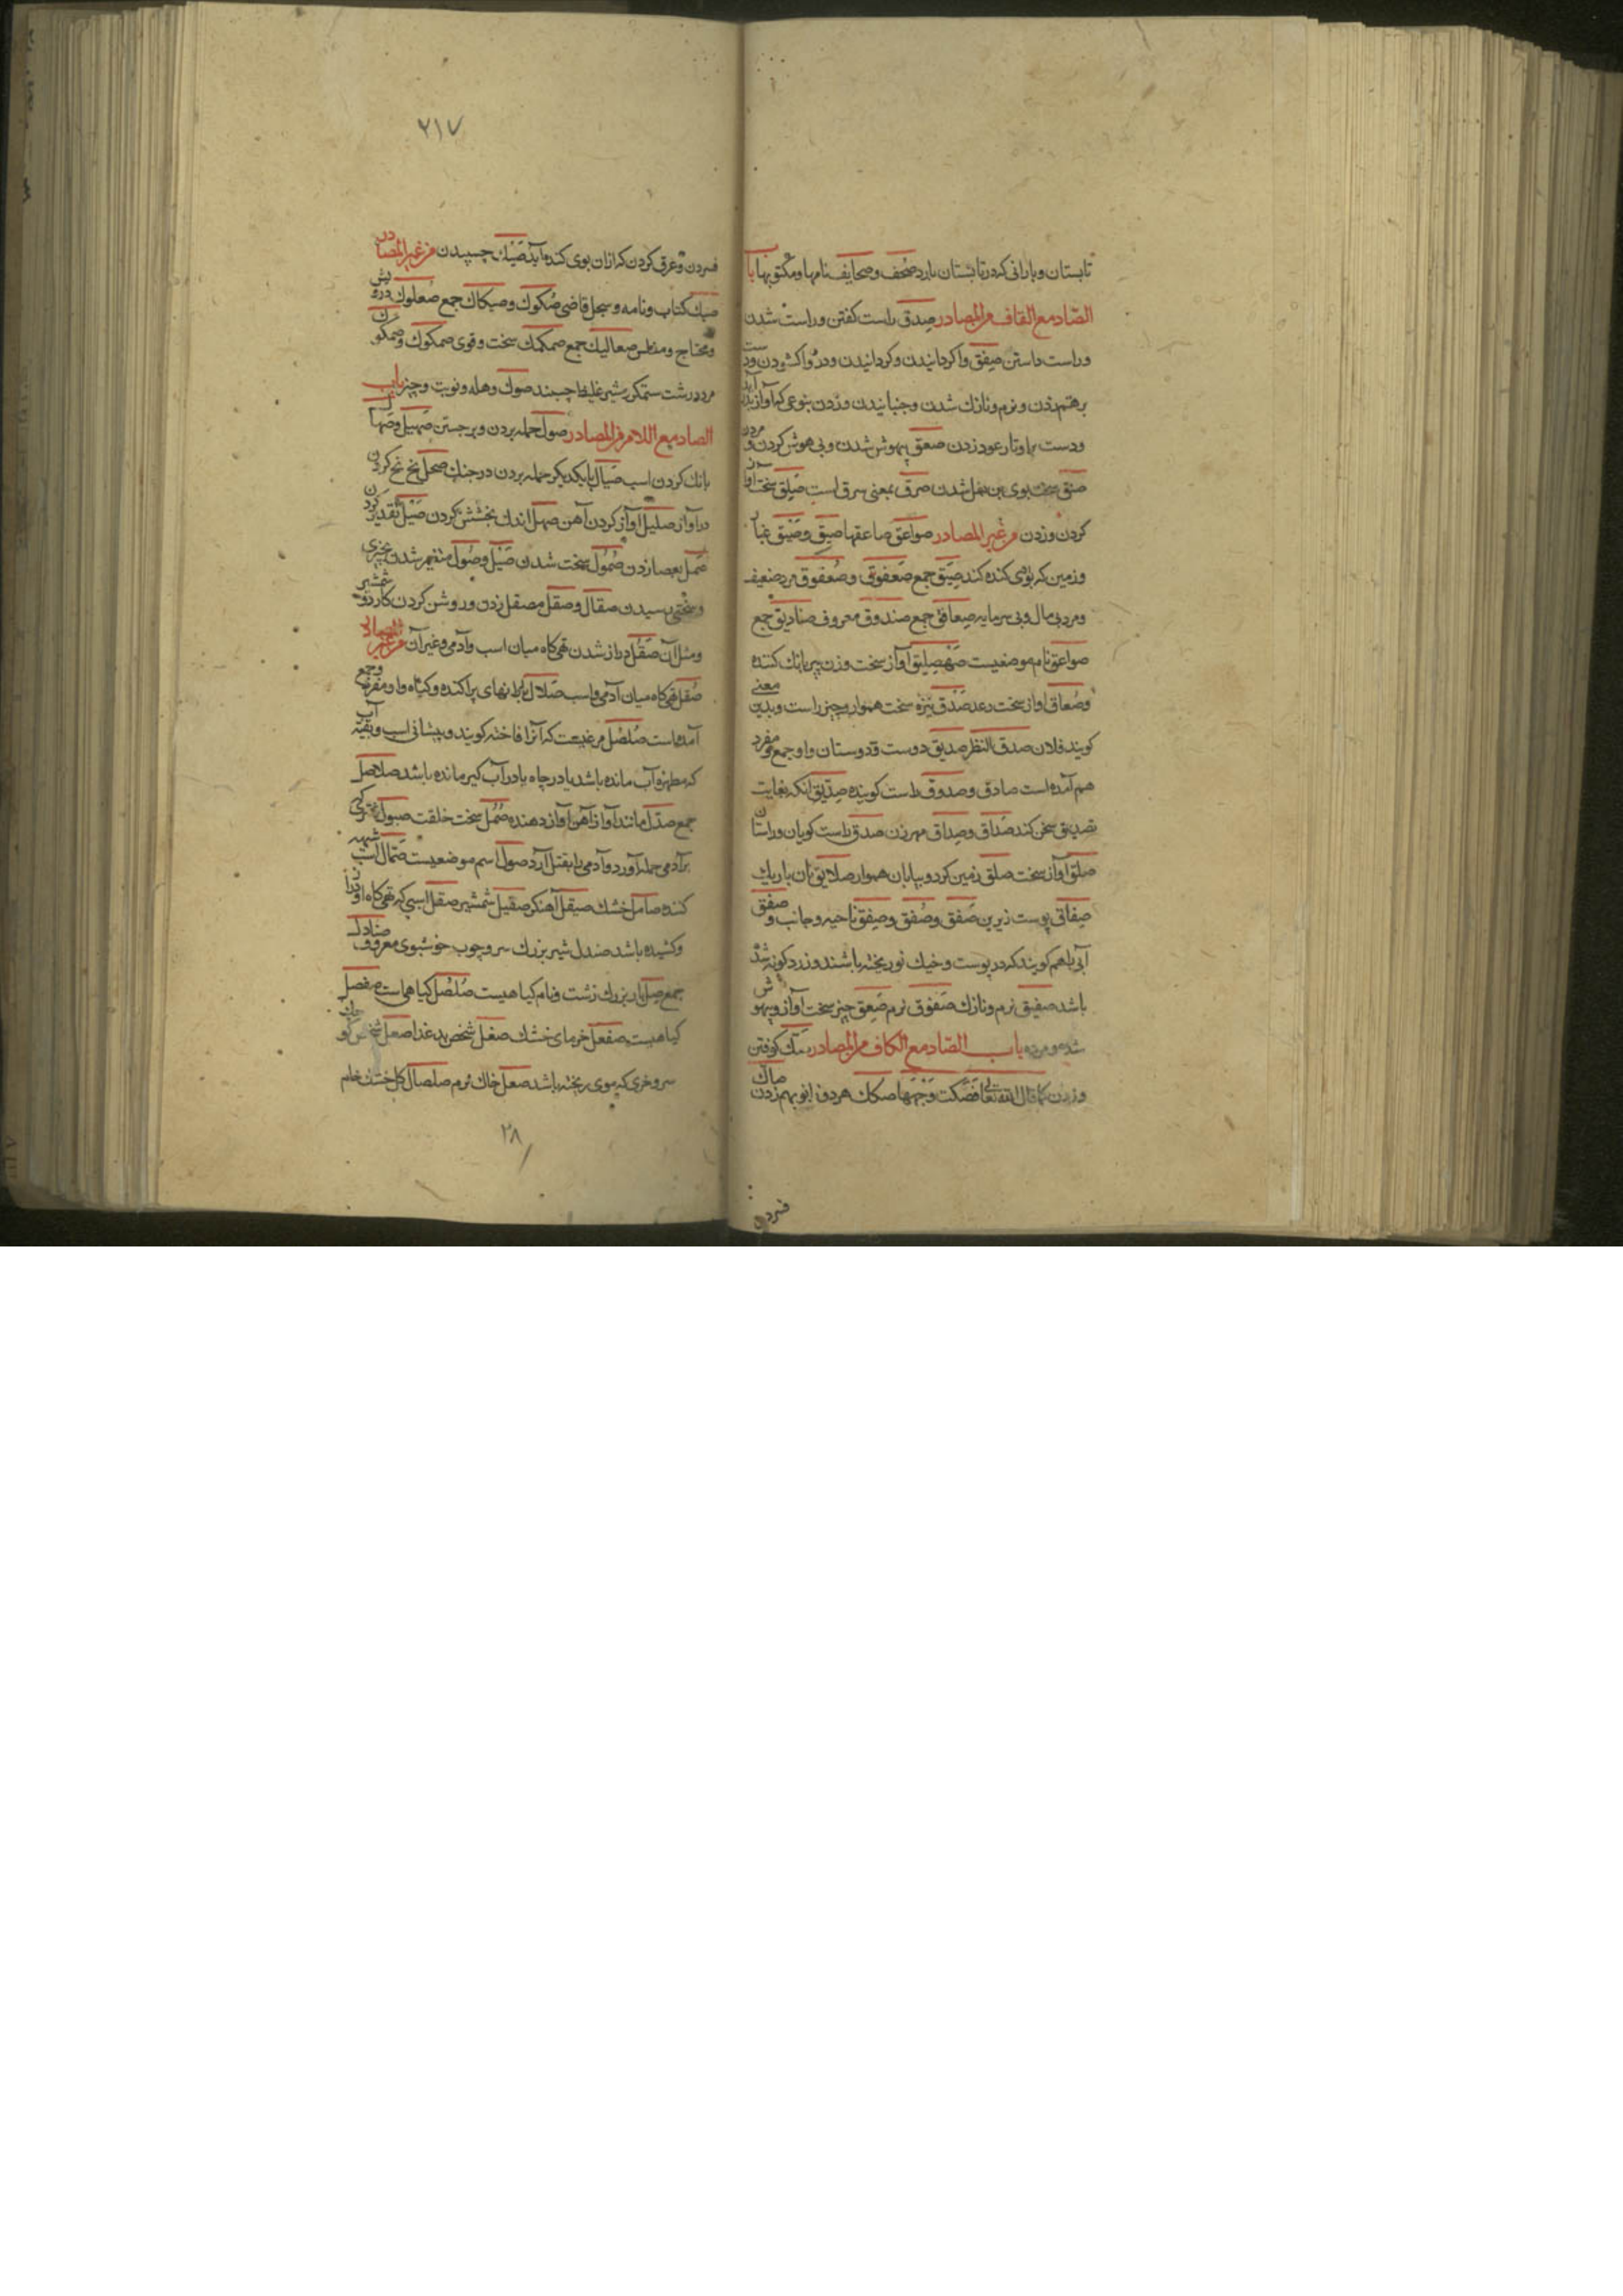 تابستان و بارانی که در تابستان بارد صُحُف و صحایف نامها و مکتوبها باب
الصّاد مع القاف من المصادر صِدق راست کفتن و راست شدن
و راست داستن صفق واکردانیدن و کردانیدن و در واکشودن و دست
برهم زدن و نرم و نازك شدن و جنبانیدن و زدن بنوعی که آواز آید
و دست بر اوتار عود زدن صعق بیهوش شدن و بی هوش کردن و مردن
شدن صرق بمعنی سرق است صَلق سخت آواز
کردن و زدن من غیر المصادر صواعق صاعقها صیق و صَیْق غبار
و زمین که بوی کنده کند صِیَق جمع صَعفوق و صُعفوق مرد ضعیف
و مرد بی مال و بی سرمایه صعافق جمع صندوق معروف صنادیق جمع
صواعق نام موضعیست صهصلیق آواز سخت و زن پیر بانك کننده
و صُعاق اواز سخت رعد صَدْق نیزه سخت هموار و چیز راست و بدین معنی
کویند فلان صدق النظر صدیق دوست و دوستان و او جمع و مفرد
هم آمده است صادق و صدوق راست کوینده صِدّیق آنکه بغایت
تصدیق سخن کند صَداق و صِداق مهر زن صدق راست کویان و راستان
صلق آواز سخت صلق زمین کرد و بیابان هموار صلایق نان باریك
صِفاق پوست زیرین صَفق و صُفق و صِفق ناحیه و جانب و صفق
آبی را هم کویند که در پوست و خیك نو ریخته باشند و زرد کونه شده
باشد صفیق نرم و نازك صَفوق نرم صَعِق چیز سخت آواز و بیهوش
شده و مرده باب الصّاد مع الکاف من المصادر صَكّ کوفتن
و زدن کما قال الله تعالی فَصَکّت وَجْهَها صکك هر دو زانو بهم زدن صاك
فسردن
۲۱۷
فسردن و عرق کردن که ازان بوی کنده آید صَیْك چسپیدن من غیر المصادر
صك کتاب و نامه و سجل قاضی صُکوك و صکاك جمع صُعلوك درویش
و محتاج و مفلس صعالیك جمع صمکمك سخت و قوی صمکوك و صمکیك
مرد درشت ستمکر شیر غلیظ چسبنده صوك و هله و نوبت و چیز باب
الصاد مع اللام من المصادر صول حمله بردن و برجستن صهیل و صُهال
بانك کردن اسب صیال با یکدیکر حمله بردن در جنك صحل نخ نخ کردن
در آواز صلیل آواز کردن آهن صهل اندك بخشش کردن صَیْل تقدیر کردن
صَمل بعصا زدن صُمُول سخت شدن صَیْل و صُول منضم شدن بچیزی
صِقال و صَقل مصقل زدن و روشن کردن کارد و شمشیر
و مثل آن صَقَل دراز شدن تهی کاه میان اسب و آدمی و غیر آن من غیر المصادر
صُقل تهی کاه میان آدمی و اسب صَلال بارانهای پراکنده و کیاه و او مفرد و جمع
آمده است صُلصُل مرغیست که آنرا فاخته کویند و پیشانی اسب و بقیه آب
که مطهره آب مانده باشد یا در چاه یا در آب کیر مانده باشد صلاصل
جمع مانند آواز آهن آواز دهنده صُمُل سخت خلقت
بر آدمی حمله آورد و آدمی را بقتل آرد صول اسم موضعیست
کننده صامل خشك صیقل آهنکر صقیل شمشیر صقل اسبی که تهی کاه او دراز
و کشیده باشد صندل شیر بزرك سر و چوب خوشبوی معروف صنادل
جمع صِل مار بزرك زشت و نام کیاهیست صُلصُل کیاهی است صفصل
کیاهیست صفعل خرمای خشك صغل شخص بد غذا صعل شخص
سر و خری که موی ریخته باشد صعل خاك نرم صلصال کل خشك خام
۲۸